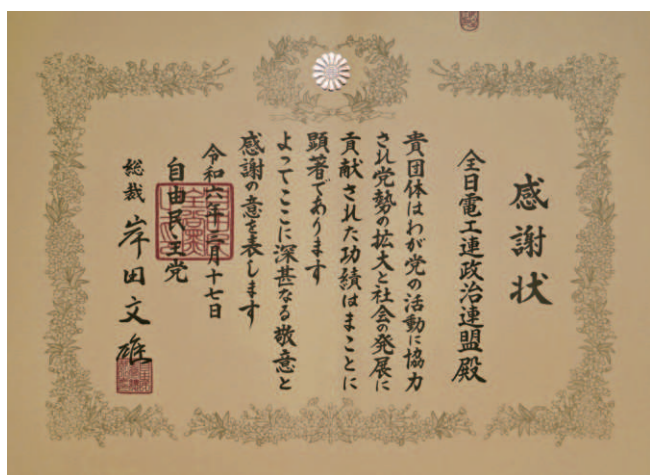 感謝状
全日電工連政治連盟殿
貴団体はわが党の活動に協力
され党勢の拡大と社会の発展に
貢献された功績はまことに
顕著であります
よってここに深甚なる敬意と
感謝の意を表します
令和六年三月十七日
自由民主党
総裁 岸田文雄